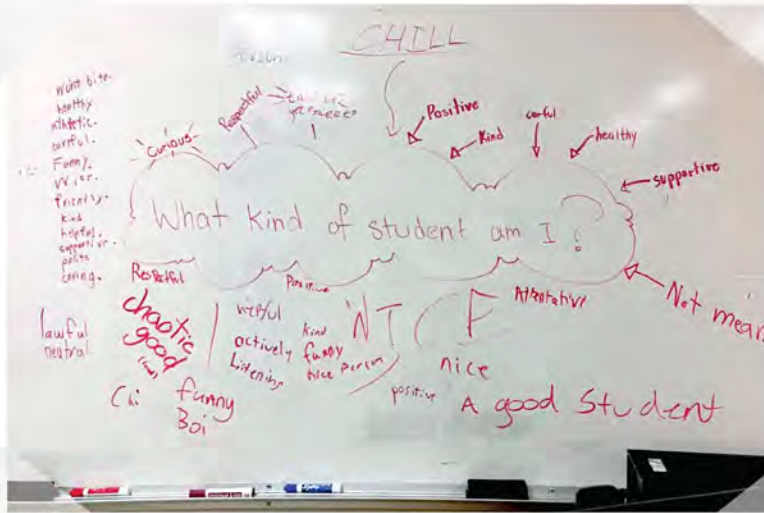 CHILL
wont bite.
healthy
athletic.
careful.
Funny.
friendly.
kind
helpful.
supportive.
polite
caring.
Curious
Respectful
Positive
Kind
healthy
supportive
What kind of student am I?
Not mean
Respectful
Positive
Attentative
lawful
neutral
chaotic
good
Chi
funny
Boi
actively
Listening
kind
funny
nice person
NT
F
nice
positive
A good Student